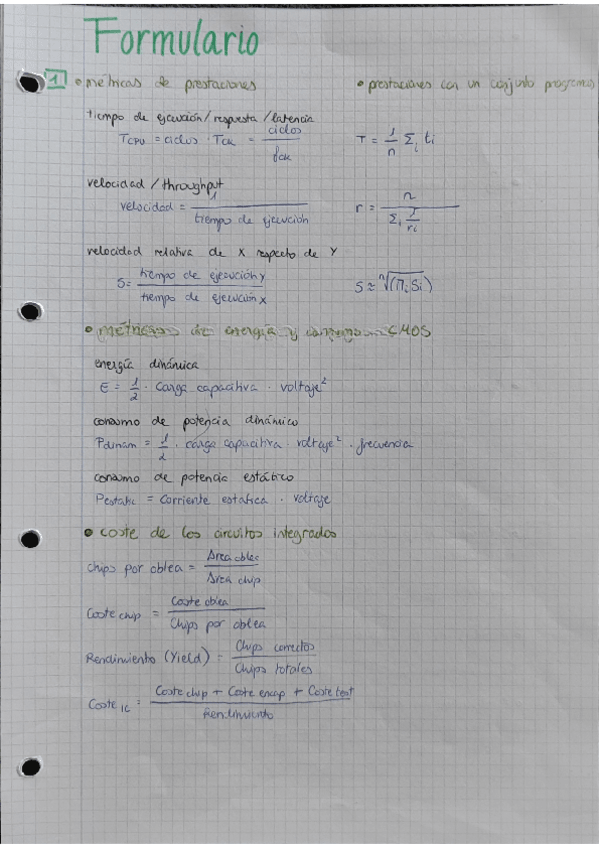 Formulario
1 • métricas de prestaciones
• prestaciones con un conjunto programas
tiempo de ejecución / respuesta / latencia
TCPU = ciclos · TCLK = ciclos / fCLK
T = 1/n Σi ti
velocidad / throughput
velocidad = 1 / tiempo de ejecución
r = n / Σi 1/ri
velocidad relativa de X respecto de Y
S = tiempo de ejecución Y / tiempo de ejecución X
S ≈ ⁿ√(Πi Si)
• métricas de energía y consumo CMOS
energía dinámica
E = 1/2 · Carga capacitiva · voltaje²
consumo de potencia dinámico
Pdinám = 1/2 · carga capacitiva · voltaje² · frecuencia
consumo de potencia estático
Pestatic = Corriente estática · voltaje
• coste de los circuitos integrados
Chips por oblea = Área oblea / Área chip
Coste chip = Coste oblea / Chips por oblea
Rendimiento (Yield) = Chips correctos / Chips totales
Coste IC = Coste chip + Coste encap + Coste test / Rendimiento